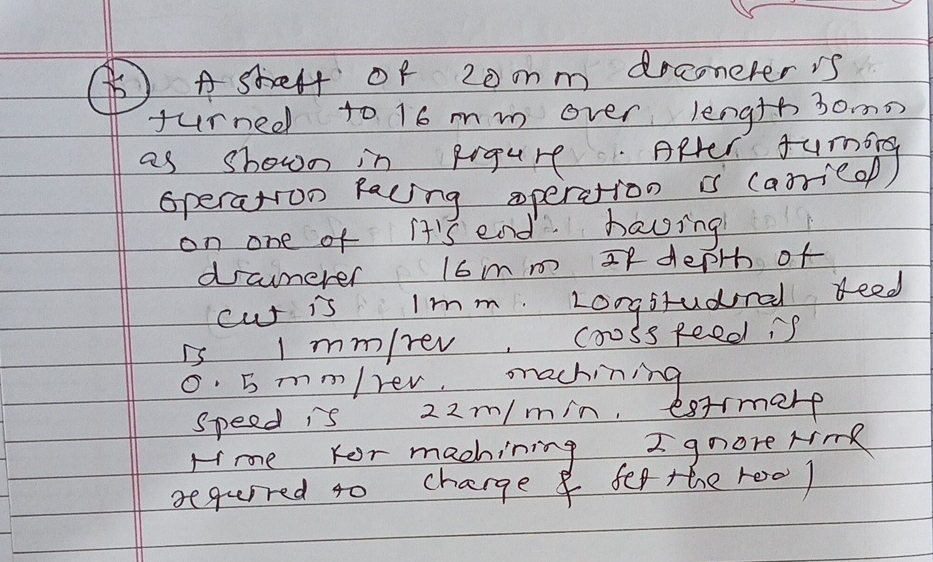 A shaft of 20mm diameter is
turned to 16 mm over length 30mm
as shown in figure. After turning
operation facing operation is carried
on one of it's end. having
diameter 16mm If depth of
cut is 1mm. Longitudinal feed
is 1 mm/rev, cross feed is
0.5mm/rev. machining
speed is 22m/min. estimate
time for machining Ignore time
required to charge & set the tool